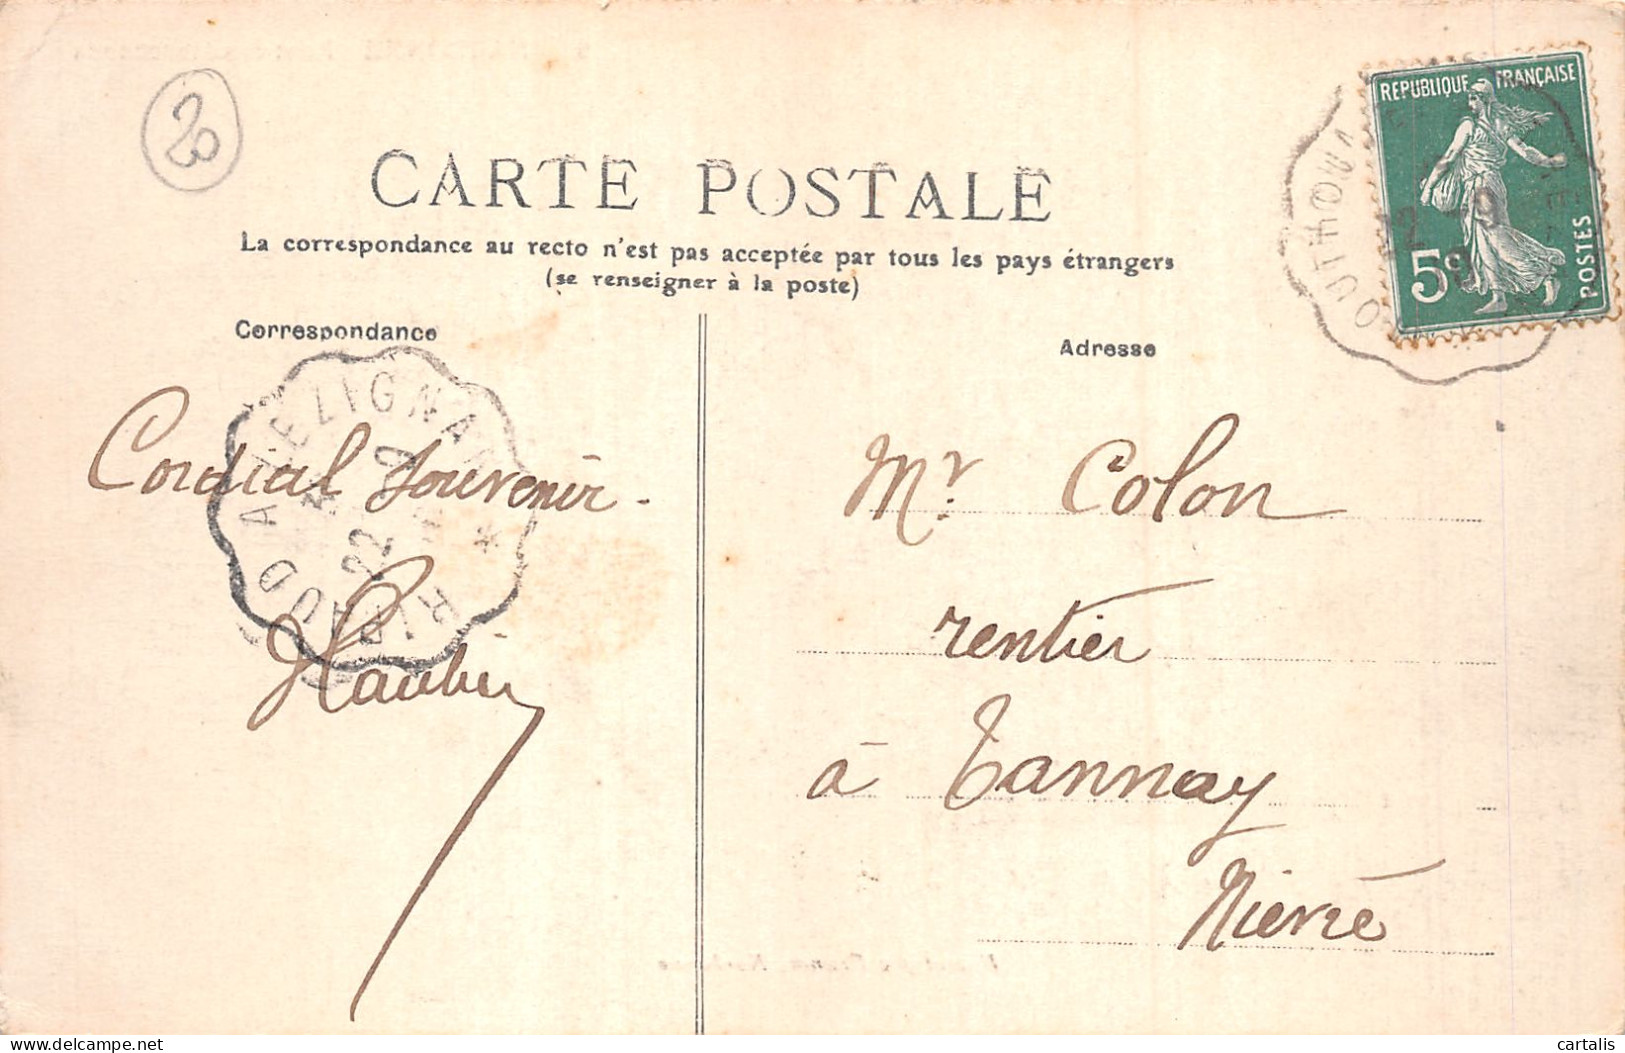 20
CARTE POSTALE
La correspondance au recto n'est pas acceptée par tous les pays étrangers
(se renseigner à la poste)
Correspondance
Adresse
REPUBLIQUE FRANÇAISE
5c
POSTES
Cordial souvenir.
Mr. Colon
rentier
à Tannay
Nièvre
delcampe.net
cartalis